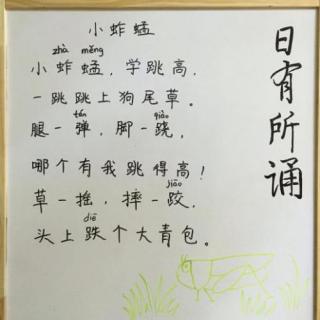 小蚱蜢
zhà měng
小蚱蜢，学跳高，
一跳跳上狗尾草。
tán qiào
腿一弹，脚一跷，
哪个有我跳得高！
jiāo
草一摇，摔一跤，
diē
头上跌个大青包。
日有所诵